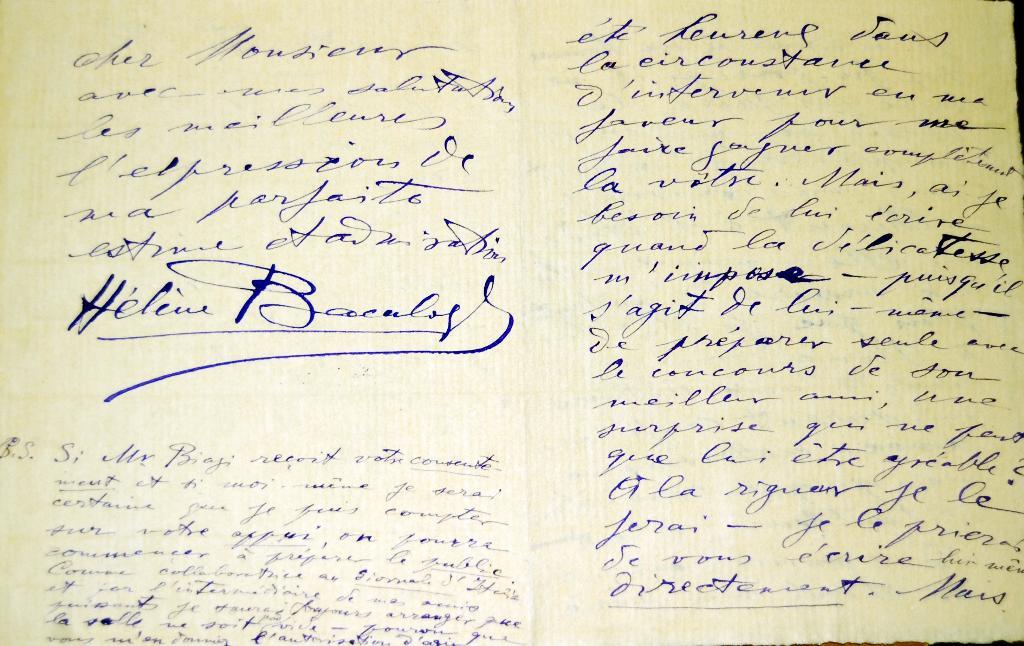 cher Monsieur
avec mes salutations
les meilleures
l'expression de
ma parfaite
estime et admiration
Hélène
P.S. Si Mr Biagi reçoit votre consente
ment et si moi-même je serai
certaine que je puis compter
sur votre appui, on pourra
commencer à préparer le public
Comme collaboratrice au Giornale d'Italia
et par l'intermédiaire de mes amis
puissants je saurai toujours arranger que
la salle ne soit pas vide – pourvu que
vous m'en donniez l'autorisation
été heureux dans
la circonstance
d'intervenir en ma
faveur pour me
faire gagner complètement
la vôtre. Mais, ai je
besoin de lui écrire
quand la délicatesse
m'impose – puisqu'il
s'agit de lui-même –
de préparer seule avec
le concours de son
meilleur ami, une
surprise qui ne peut
que lui être agréable?
A la rigueur je le
ferai – je le prierai
de vous écrire lui même
directement. Mais